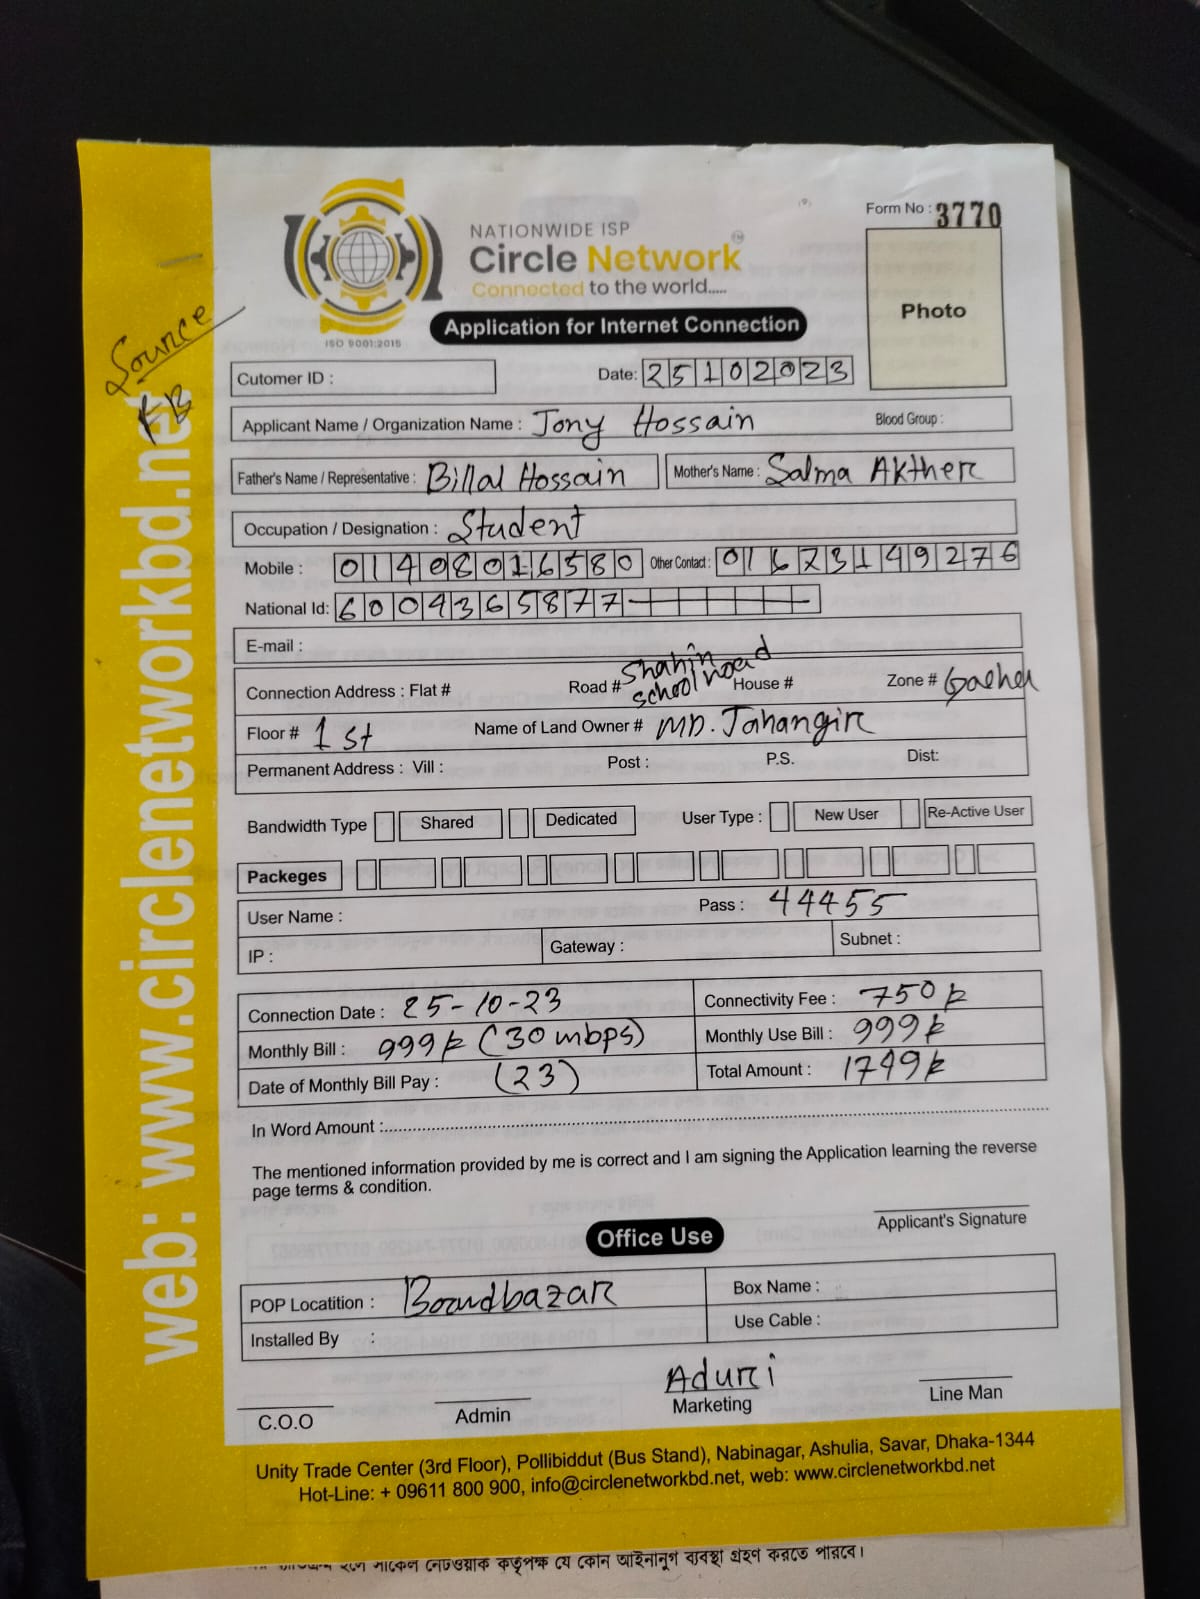 Form No : 3770
NATIONWIDE ISP
Circle Network TM
Connected to the world.....
ISO 9001:2015
Application for Internet Connection
Photo
Source
FB
web: www.circlenetworkbd.net
Cutomer ID :
Date: 25102023
Applicant Name / Organization Name : Jony Hossain Blood Group :
Father's Name / Representative : Billal Hossain Mother's Name : Salma Akther
Occupation / Designation : Student
Mobile : 01408016580 Other Contact : 01673149276
National Id: 6004365877
E-mail :
Connection Address : Flat # Road # Shahin school road House # Zone #
Floor # 1st Name of Land Owner # MD. Jahangir
Permanent Address : Vill : Post : P.S. Dist:
Bandwidth Type Shared Dedicated User Type : New User Re-Active User
Packeges
User Name : Pass : 44455
IP : Gateway : Subnet :
Connection Date : 25-10-23 Connectivity Fee : 750/-
Monthly Bill : 999/- (30 mbps) Monthly Use Bill : 999/-
Date of Monthly Bill Pay : (23) Total Amount : 1749/-
In Word Amount :
The mentioned information provided by me is correct and I am signing the Application learning the reverse
page terms & condition.
Applicant's Signature
Office Use
POP Locatition : Boardbazar Box Name :
Installed By : Use Cable :
Aduri
C.O.O Admin Marketing Line Man
Unity Trade Center (3rd Floor), Pollibiddut (Bus Stand), Nabinagar, Ashulia, Savar, Dhaka-1344
Hot-Line: + 09611 800 900, info@circlenetworkbd.net, web: www.circlenetworkbd.net
হলে সার্কেল নেটওয়ার্ক কর্তৃপক্ষ যে কোন আইনানুগ ব্যবস্থা গ্রহণ করতে পারবে।